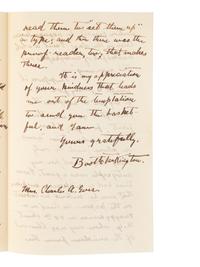 read them to "set them up"
in type; and then there was the
proof-reader, too; that makes
three.
It is my appreciation
of your kindness that leads
me out of the temptation
to send you the basket-
ful, and I am
Yours gratefully,
Booth Tarkington.
Mrs. Charles A.